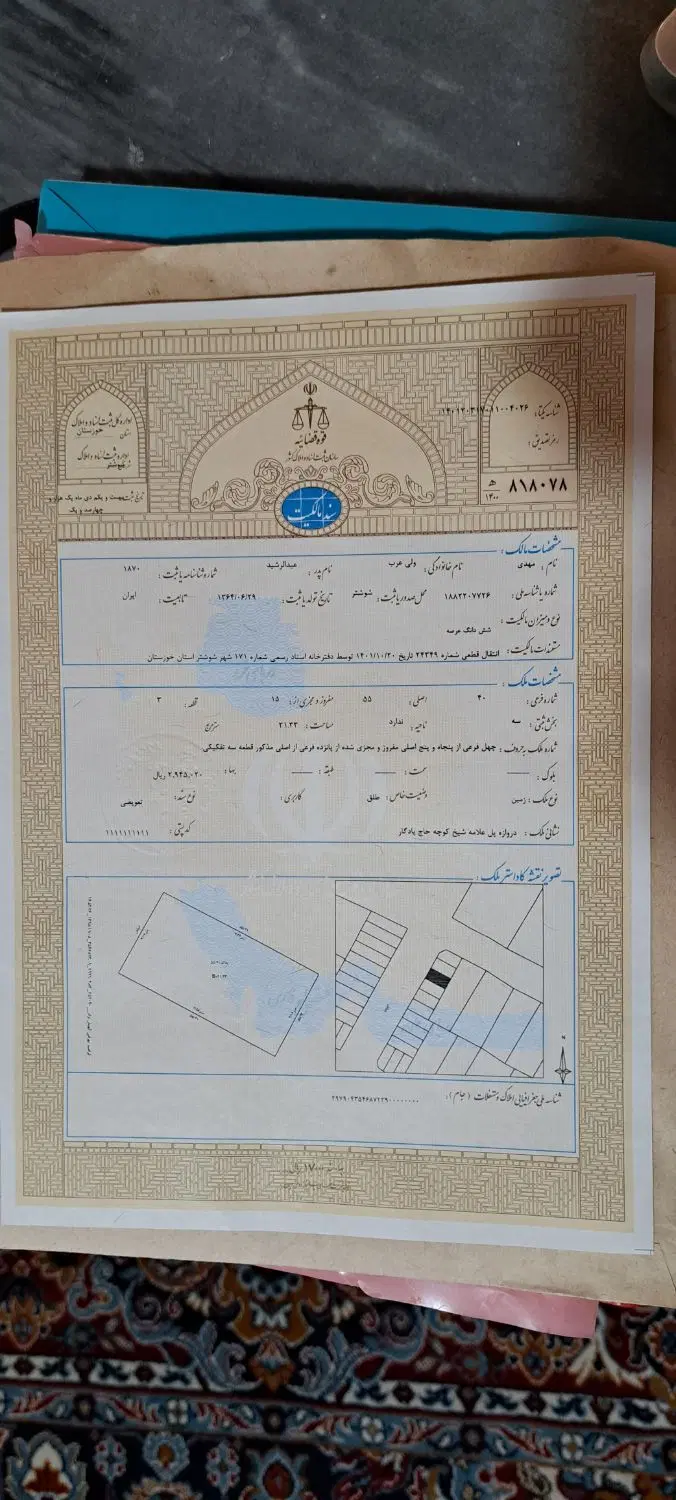 شناسه یکتا: ۱۴۰۱۲۰۳۱۷۰۸۱۱۰۰۴۰۲۶
رمز تصدیق:
۸۱۸۰۷۸
ه‍
۱۴۰۰
قوه قضائیه
سازمان ثبت اسناد و املاک کشور
سند مالکیت
اداره کل ثبت اسناد و املاک
استان خوزستان
اداره ثبت اسناد و املاک
شوشتر
تاریخ ثبت: بیست و یکم دی ماه یک هزار و
چهارصد و یک
مشخصات مالک:
نام: مهدی نام خانوادگی: ولی عرب نام پدر: عبدالرشید شماره شناسنامه یا ثبت: ۱۸۷۰
شماره یا شناسه ملی: ۱۸۸۲۲۰۷۷۲۶ محل صدور یا ثبت: شوشتر تاریخ تولد یا ثبت: ۱۳۶۴/۰۶/۲۹ تابعیت: ایران
نوع و میزان مالکیت: شش دانگ عرصه
مستندات مالکیت: انتقال قطعی شماره ۲۴۳۴۹ تاریخ ۱۴۰۱/۱۰/۲۰ توسط دفترخانه اسناد رسمی شماره ۱۷۱ شهر شوشتر استان خوزستان
مشخصات ملک:
شماره فرعی: ۴۰ اصلی: ۵۵ مفروز و مجزی از: ۱۵ قطعه: ۳
بخش ثبتی: سه ناحیه: ندارد مساحت: ۲۱.۳۳ مترمربع
شماره ملک به حروف: چهل فرعی از پنجاه و پنج اصلی مفروز و مجزی شده از پانزده فرعی از اصلی مذکور قطعه سه تفکیکی
بلوک: سمت: طبقه: بها: ۲،۹۴۵،۰۲۰ ریال
نوع ملک: زمین وضعیت خاص: طلق کاربری: نوع سند: تعویضی
نشانی ملک: دروازه پل علامه شیخ کوچه حاج یادگار کد پستی: ۱۱۱۱۱۱۱۱۱۱
تصویر نقشه کاداستر ملک:
N
شناسه ملی جغرافیایی املاک و مستغلات (جام): ۲۹۷۹۰۴۳۵۴۶۸۷۲۲۹۰۰۰۰۰۰۰۰